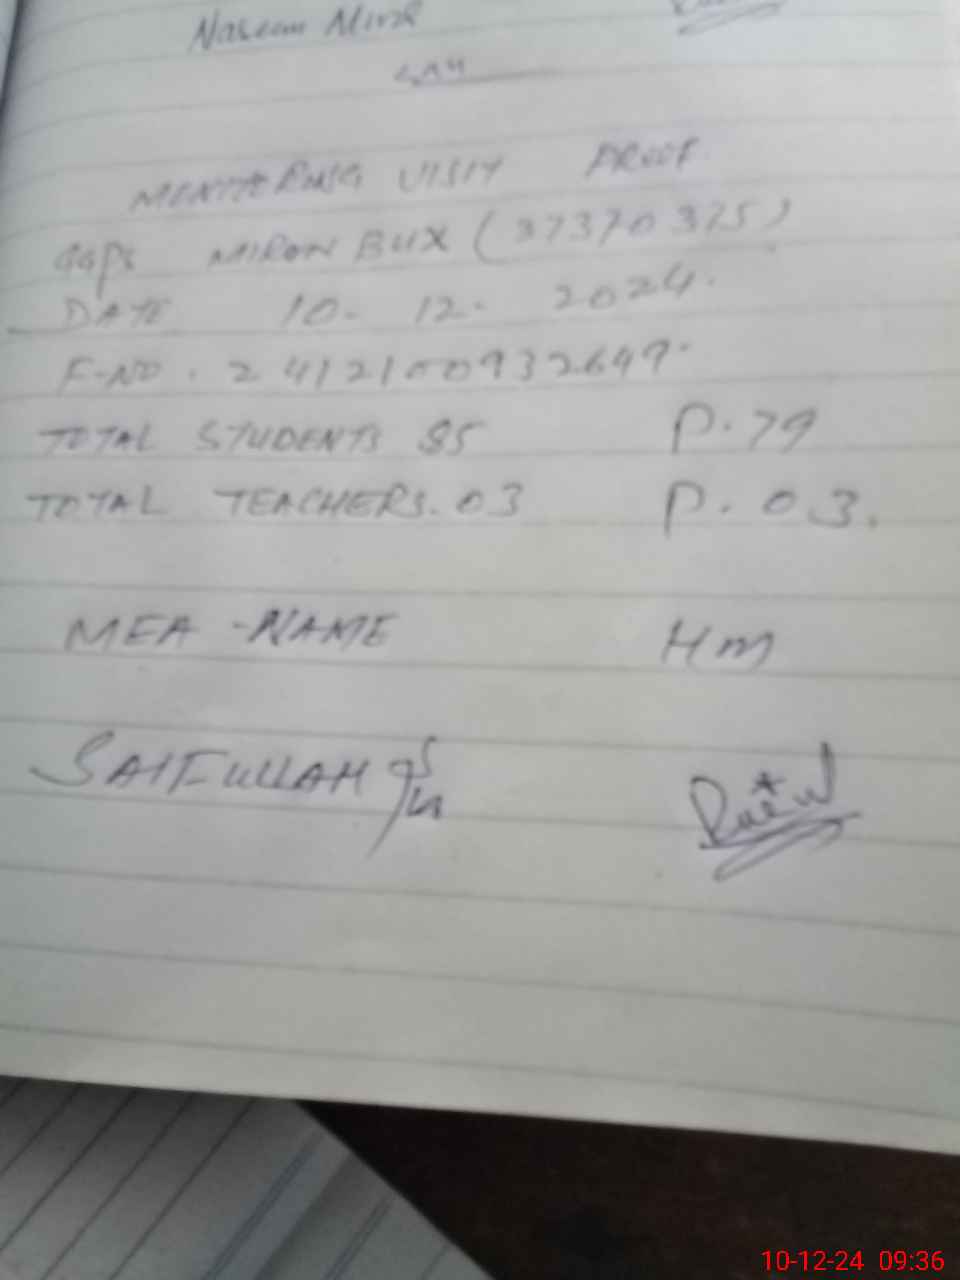 Naseem Mirza
MONITERING VISIT PROOF
GGPS MIRON BUX (37370375)
DATE 10- 12- 2024.
F-NO. 2412100932649.
TOTAL STUDENTS 85 P. 79
TOTAL TEACHERS. 03 P. 03.
MEA -NAME HM
SAIFULLAH
10-12-24 09:36